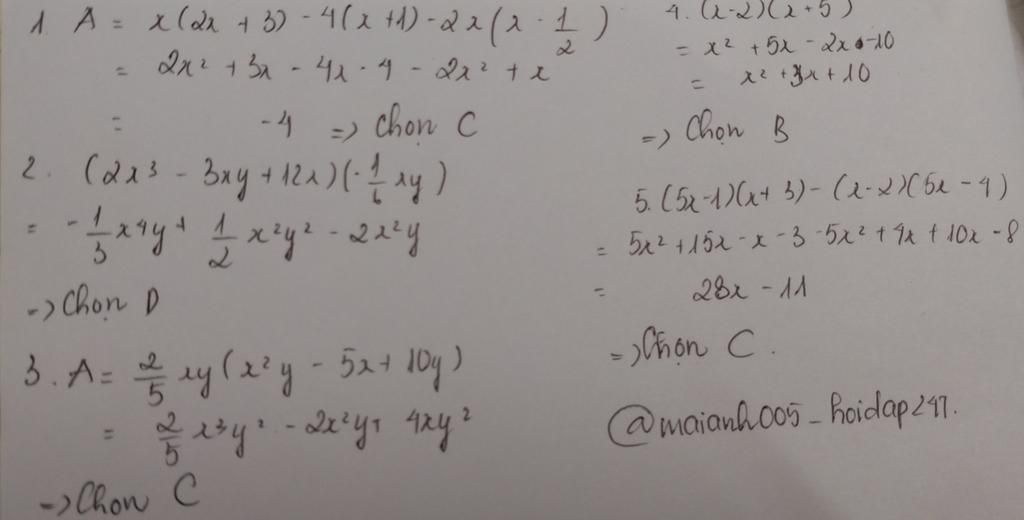 1. A = x(2x + 3) - 4(x+1) - 2x(x - 1/2)
= 2x² + 3x - 4x - 4 - 2x² + x
= -4 => Chọn C
2. (2x³ - 3xy + 12x)(-1/6 xy)
= -1/3 x⁴y + 1/2 x²y² - 2x²y
-> Chọn D
3. A = 2/5 xy(x²y - 5x + 10y)
= 2/5 x³y² - 2x²y + 4xy²
-> Chọn C
4. (x-2)(x+5)
= x² + 5x - 2x - 10
= x² + 3x + 10
=> Chọn B
5. (5x-1)(x+3) - (x-2)(5x-4)
= 5x² + 15x - x - 3 - 5x² + 4x + 10x - 8
= 28x - 11
=> Chọn C.
@maianh005_hoidap247.